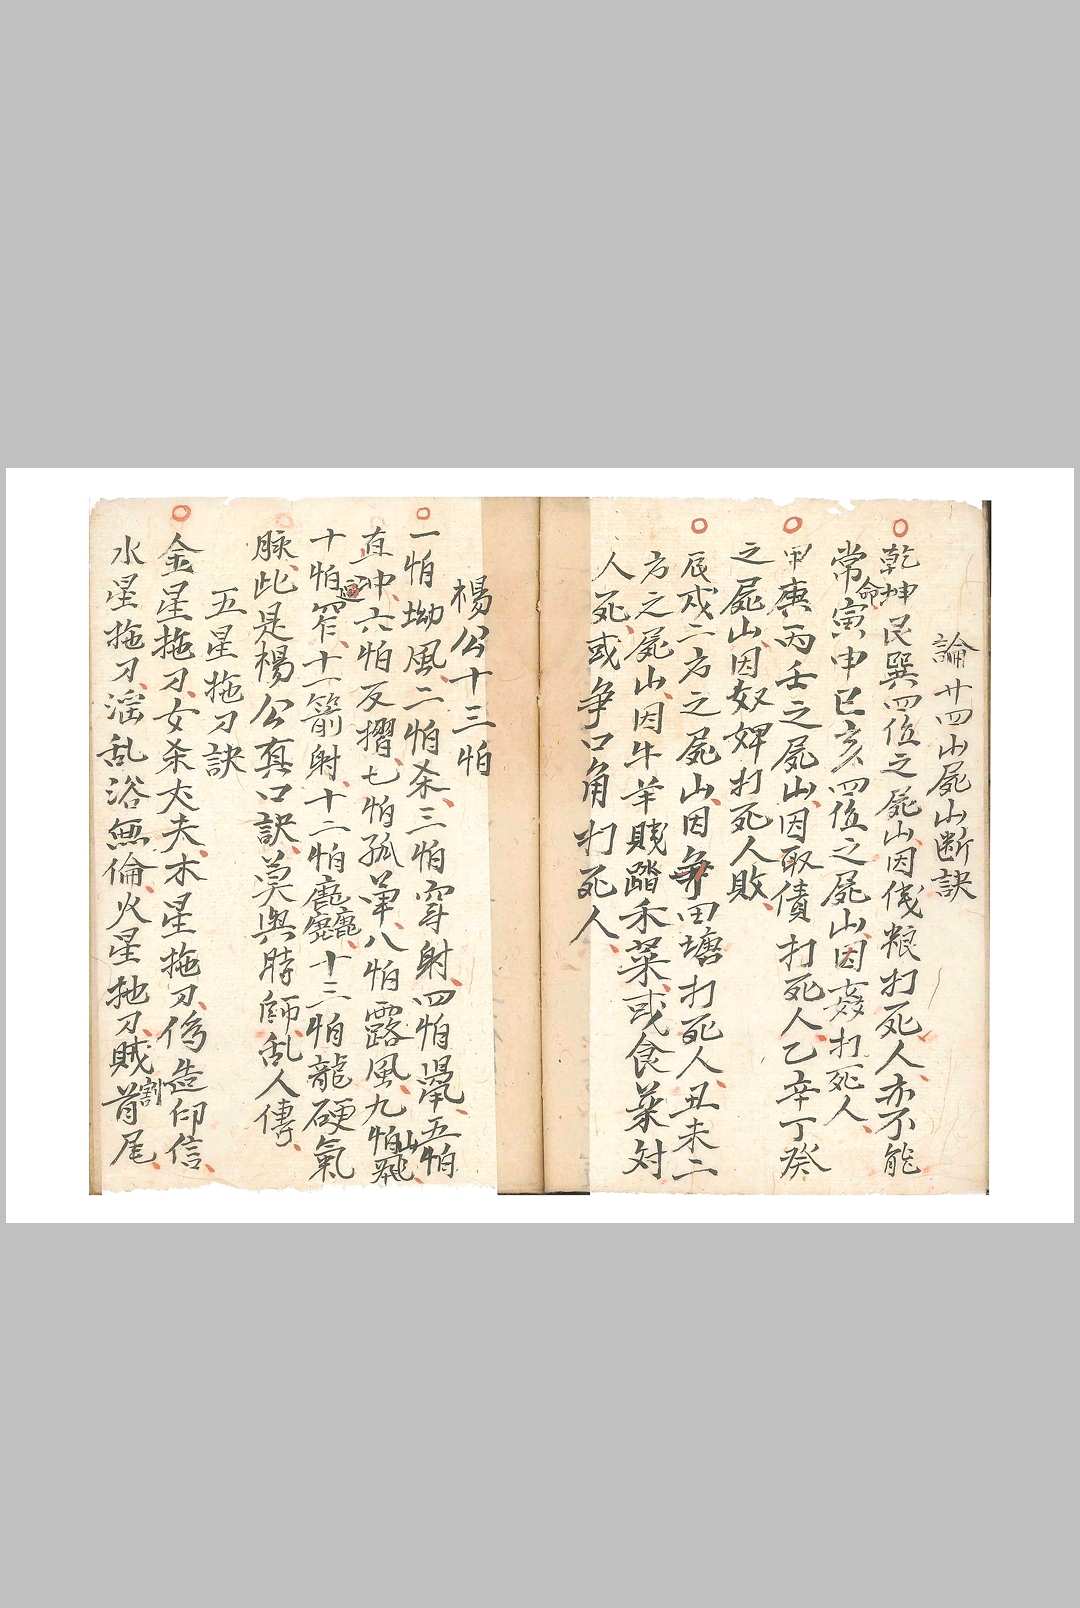 論廿四山屍山断訣
乾坤艮巽四位之屍山因伐粮打死人命亦不能
常寅申巳亥四位之屍山因姦打死人
甲庚丙壬之屍山因取債打死人乙辛丁癸
之屍山因奴婢打死人敗
辰戌二方之屍山因争田塘打死人丑未二
方之屍山因牛羊賤踏禾菜或食菜对
人死或争口角打死人
楊公十三怕
一怕坳風二怕杀三怕穿射四怕五怕
直冲六怕反摺七怕孤单八怕露風九怕山飛
十怕窄逼十一箭射十二怕十三怕龍硬氣
脉此是楊公真口訣莫與時師乱人傳
五星拖刀訣
金星拖刀女杀丈夫木星拖刀偽造印信
水星拖刀淫乱浴無倫火星拖刀賊割首尾